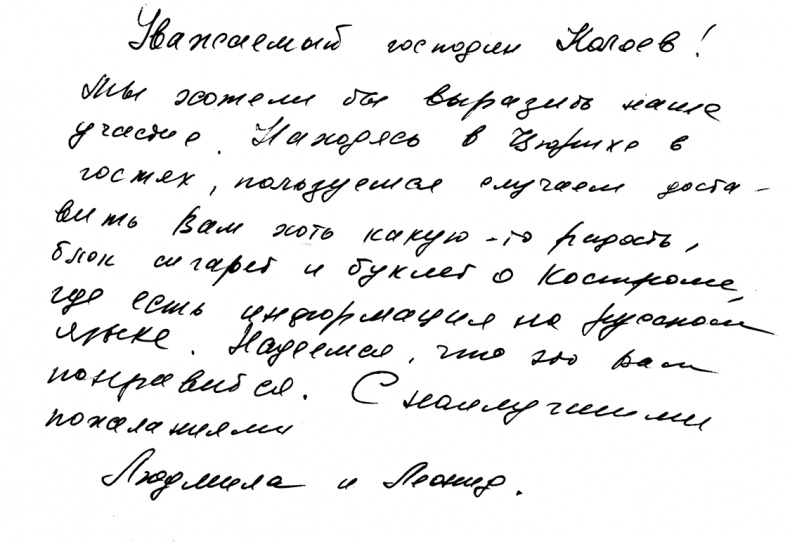 Уважаемый господин Калоев!
Мы хотели бы выразить наше
участие. Находясь в Цюрихе в
гостях, пользуемся случаем доста-
вить Вам хоть какую-то радость,
блок сигарет и буклет о Костроме,
где есть информация на русском
языке. Надеемся, что это вам
понравится. С наилучшими
пожеланиями
Людмила и Леонид.